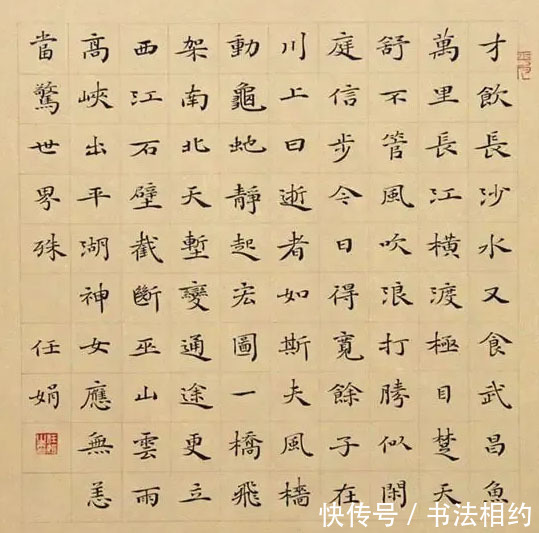 才飲長沙水又食武昌魚
萬里長江橫渡極目楚天
舒不管風吹浪打勝似閑
庭信步今日得寬餘子在
川上曰逝者如斯夫風檣
動龜虵靜起宏圖一橋飛
架南北天塹變通途更立
西江石壁截斷巫山雲雨
高峽出平湖神女應無恙
當驚世界殊 任娟
快传号 / 书法相约